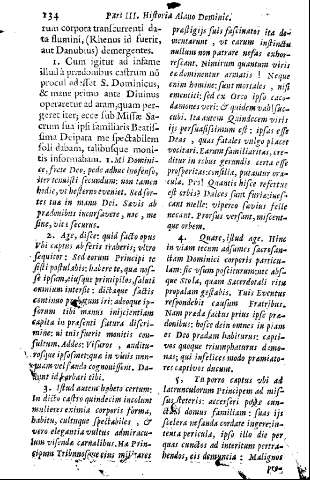 134 Part III. Historia Alano Dominic.
rum corpora transeurrenti da-
ta flumini, (Rhenus id fuerit,
aut Danubius) demergentes.
1. Cum igitur ad infame
illud à prædonibus castrum nō
procul adesset S. Dominicus,
& mane primo ante Divinis
operaretur ad aram, quam per-
geret iter; ecce sub Missæ Sa-
crum sua ipsi familiaris Beatis-
sima Deipara me spectabilem
soli dabam, talibusque moni-
tis informabam. 1. Mi Domini-
ce, frate Deo; pede adhuc inoffenso,
iter tenuisti secundum: non tamen
hodie, ut hesterno eveniet. Sed for-
tes tua in manu Dei. Sævis ab
prædonibus incursavere, nec, me
sine, vis securus.
2. Age, disce; quid facto opus
Ubi captus ab feris traheris; ultro
sequitor: Sed eorum Principi te
sisti postulabis; habere te, qua nos-
se ipsum, ejusque principilos, saluti
omnium intersit: dictisque factis
continuo
forum tibi manus injicientiam
capita in præsenti futura discri-
mine; ni tuis fuerit monitis con-
sultum. Addes: Visuros, audi tu-
rosque ipsosmet: qua in vivis nun-
quam vel fando cognovissent. Da-
bunt id barbari tibi.
3. Istud autem habeto certum;
In dicto castro quindecim incolunt
mulieres eximia corporis forma,
habitu, cultuque spectabiles, &
vero elegantia vultus admiracu-
lum visenda carnalibus. Hæ Prin-
cipum Tribunosque ejus mil tares
præstigijs suis fascinator ita de-
muntarunt, ut earum instinctu
nullum non patrare nefas exhor-
rescant. Nimirum quantum viris
ex dementibus armatis! Neque
enim homine; sunt mortales, nisi
ementisi; sed ex Orco ipso caco-
dæmones veri; & quidem vabl sue-
cubi. Ita autem Quindecim viris
ijs persuasissimum est: ipsas esse
Deas, quas fatales vulgo placet
vocitari. Earum familiaritas, cre-
ditur in rebus gerundis certa esse
prosperitas: consilia, putantur ora-
cula. Proh! Quantis hisce refertus
est orbis? Dolces sunt furia; vius-
cant melle; vipereo sævius felle
necant. Prorsus versant, miscent-
que orbem.
4. Quare, istud age. Hinc
in viam tecum assumes sacrosan-
ctum Dominici corporis particu-
lam: sic visum positurum; ne abs-
que Stola, quam Sacerdotali rita
propalam gestabis. Tuti Eventus
respondebit causam Fratribus.
Nam præda factus prius ipse præ-
donibus: hosce dein omnes in piam
te Deo prædam habiturus: capti-
vos quoque triumphaturus dæmo-
nas; qui infelices modo præmiato-
res captivos ducunt.
5. Tu porro captus ubi ad
latrunculorum Principem ad mis-
sus steteris: acceseri posce cun-
ctos domus familiam: suas ijs
scelera nefanda cordate ingere; in-
tenta pericula, ipso illo die per
quas cunctas ad interitum pertra-
hendos, eis denuncia: Malignos
pro-